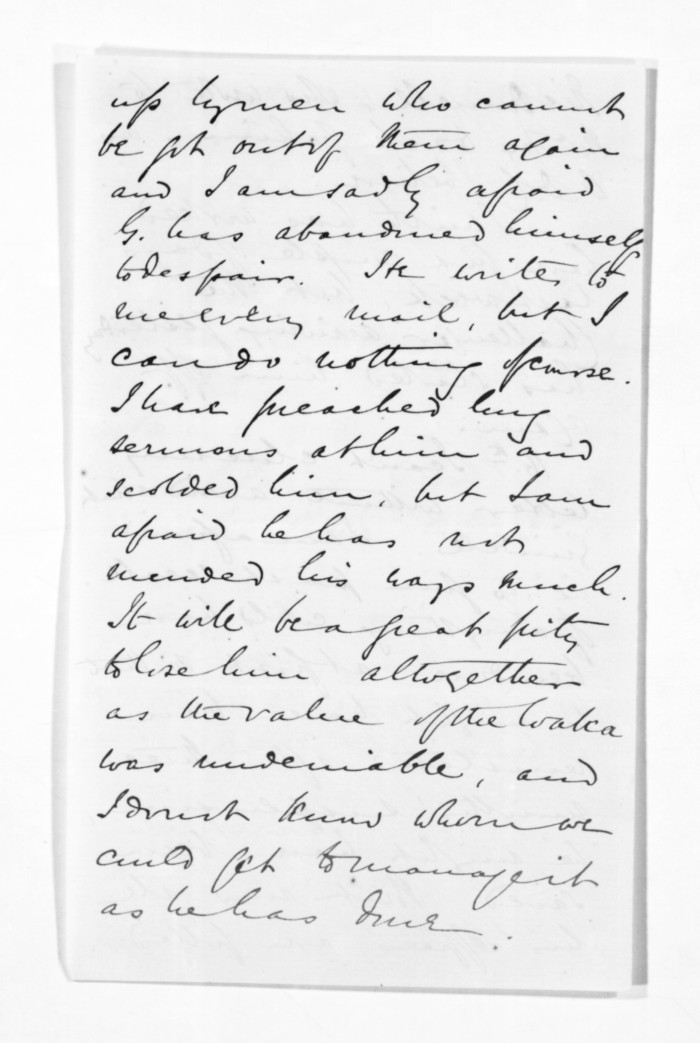 up by men who cannot
be got out of them again
and I am sadly afraid
G. has abandoned himself
to despair. He writes to
me every mail, but I
can do nothing of course.
I have preached long
sermons at him and
scolded him, but I am
afraid he has not
mended his ways much.
It will be a great pity
to lose him altogether
as the value of the Waka
was undeniable, and
I don't know whom we
could get to manage it
as he has done.